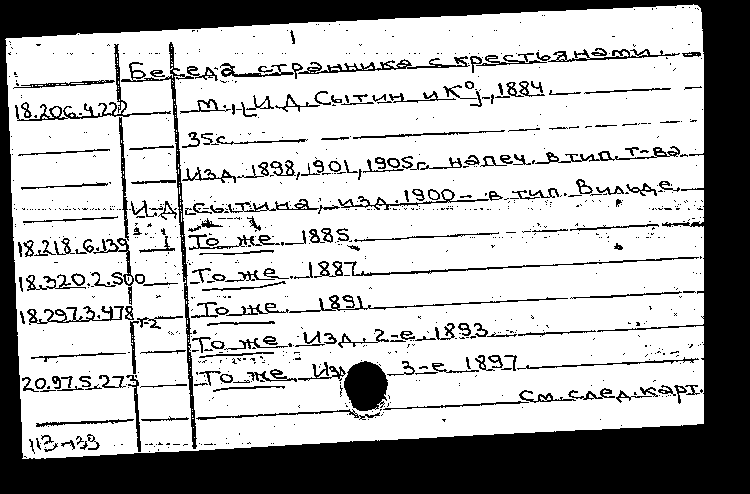 1
Беседа странника с крестьянами.
18.206.4.222 М., И.Д. Сытин и Кº, 1884.
35с.
Изд. 1898, 1901, 1905г. напеч. в тип. Т-ва
И.Д. Сытина; изд. 1900 - в тип. Вильде.
18.218.6.139 То же. 1885.
18.320.2.500 То же. 1887.
18.297.3.478 То же. 1891.
т-2
То же. Изд. 2-е. 1893
20.97.5.273 То же. Изд. 3-е. 1897.
См. след. карт.
113-133